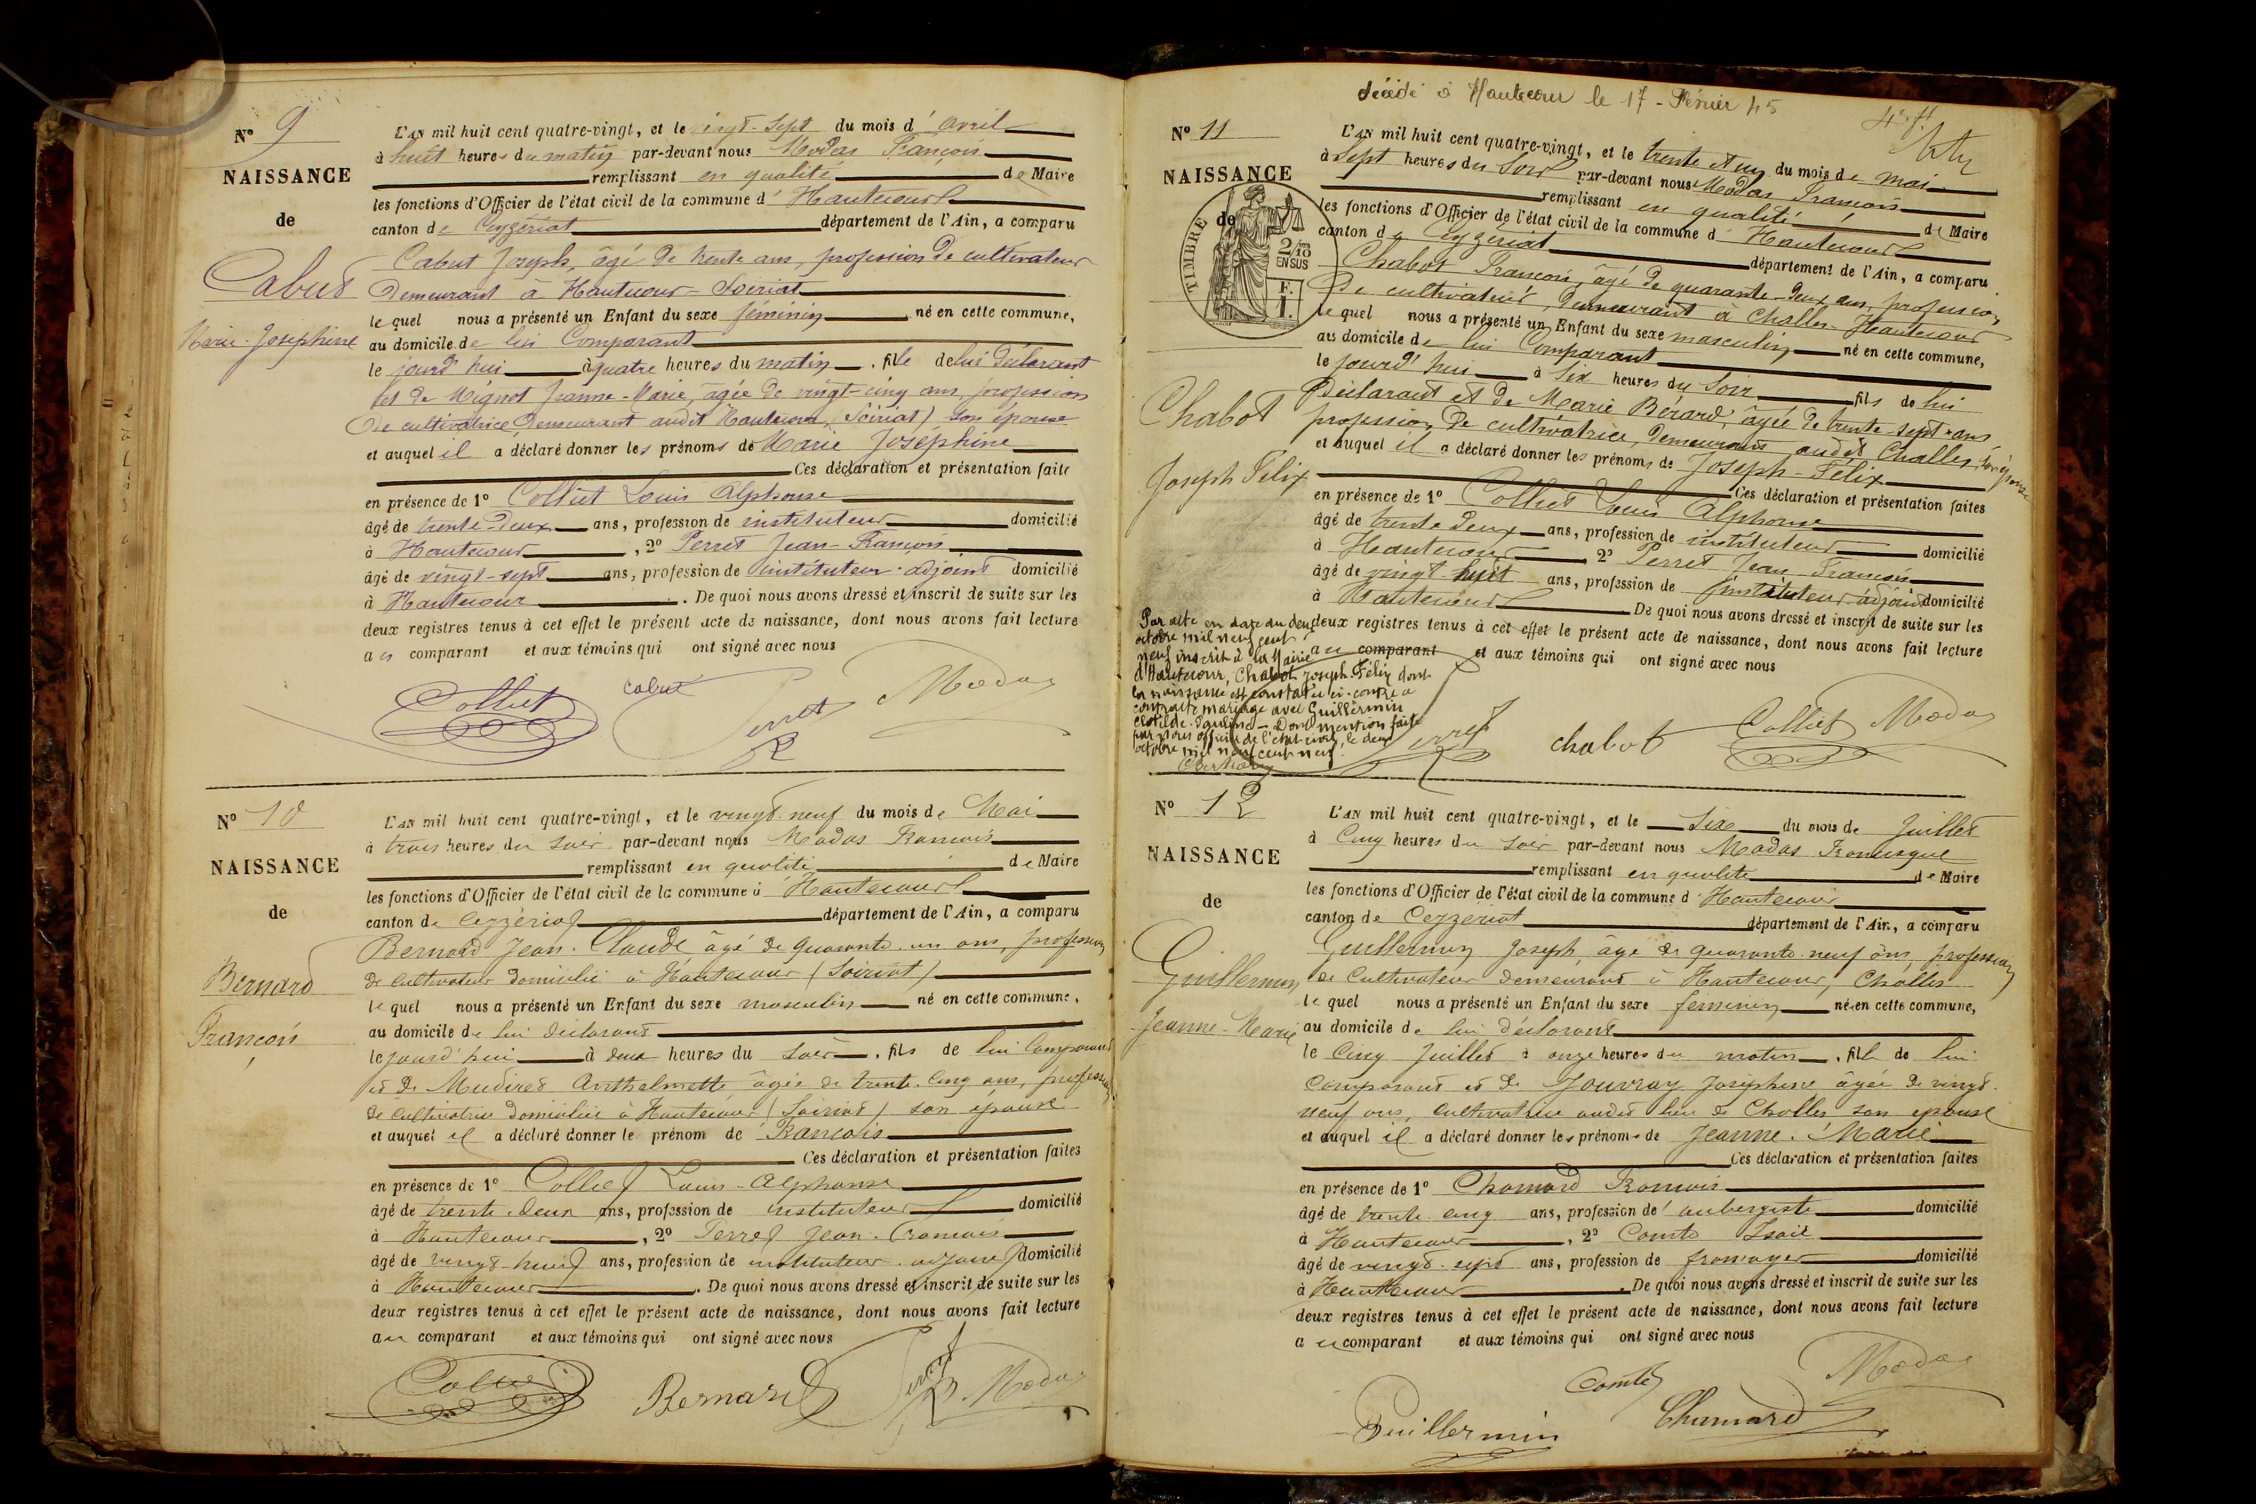 N° 9
NAISSANCE
de
Cabut
Marie-Joséphine
L'AN mil huit cent quatre-vingt, et le vingt-sept du mois d'avril
à huit heures du matin par-devant nous Modas François
remplissant en qualité de Maire
les fonctions d'Officier de l'état civil de la commune d'Hautecourt
canton de Ceyzériat département de l'Ain, a comparu
Cabut Joseph, âgé de trente ans, profession de cultivateur
demeurant à Hautecour-Soiriat
lequel nous a présenté un Enfant du sexe féminin né en cette commune,
au domicile de lui Comparant
le jourd'hui à quatre heures du matin, fille de lui déclarant
et de Mignot Jeanne-Marie, âgée de vingt-cinq ans, profession
de cultivatrice demeurant audit Hautecour (Soiriat) son épouse
et auquel il a déclaré donner les prénoms de Marie Joséphine
Ces déclaration et présentation faite
en présence de 1° Colliet Louis Alphonse
âgé de trente-deux ans, profession de instituteur domicilié
à Hautecour, 2° Perret Jean-François
âgé de vingt-sept ans, profession de instituteur-adjoint domicilié
à Hautecour. De quoi nous avons dressé et inscrit de suite sur les
deux registres tenus à cet effet le présent acte de naissance, dont nous avons fait lecture
aux comparant et aux témoins qui ont signé avec nous
Colliet cabut Perret Modas
N° 10
NAISSANCE
de
Bernard
François
L'AN mil huit cent quatre-vingt, et le vingt-neuf du mois de Mai
à trois heures du soir par-devant nous Modas François
remplissant en qualité de Maire
les fonctions d'Officier de l'état civil de la commune d'Hautecourt
canton de Ceyzériat département de l'Ain, a comparu
Bernard Jean-Claude âgé de quarante-un ans, profession
de cultivateur domicilié à Hautecour (Soiriat)
lequel nous a présenté un Enfant du sexe masculin né en cette commune,
au domicile de lui déclarant
le jourd'hui à deux heures du soir, fils de lui Comparant
et de Anthelmette âgée de trente-cinq ans, profession
de cultivatrice domiciliée à Hautecour (Soiriat) son épouse
et auquel il a déclaré donner le prénom de François
Ces déclaration et présentation faites
en présence de 1° Colliet Louis-Alphonse
âgé de trente-deux ans, profession de instituteur domicilié
à Hautecour, 2° Perret Jean-François
âgé de vingt-huit ans, profession de instituteur adjoint domicilié
à Hautecour. De quoi nous avons dressé et inscrit de suite sur les
deux registres tenus à cet effet le présent acte de naissance, dont nous avons fait lecture
au comparant et aux témoins qui ont signé avec nous
Colliet Bernard Perret Modas
décédé à Hautecour le 17-Février 45
N° 11
NAISSANCE
de
TIMBRE
2/10
EN SUS
F.
1.
Chabot
Joseph Félix
L'AN mil huit cent quatre-vingt, et le trente et un du mois de mai
à sept heures du soir par-devant nous Modas François
remplissant en qualité de Maire
les fonctions d'Officier de l'état civil de la commune d'Hautecourt
canton de Ceyzériat département de l'Ain, a comparu
Chabot François, âgé de quarante-deux ans, profession
de cultivateur, demeurant à Challes-Hautecour
lequel nous a présenté un Enfant du sexe masculin né en cette commune,
au domicile de lui Comparant
le jourd'hui à six heures du soir fils de lui
déclarant et de Marie Bérard, âgée de trente-sept ans
profession de cultivatrice, demeurant audit Challes, son épouse
et auquel il a déclaré donner les prénoms de Joseph-Félix
Ces déclaration et présentation faites
en présence de 1° Colliet Louis Alphonse
âgé de trente-deux ans, profession de instituteur domicilié
à Hautecour 2° Perret Jean François
âgé de vingt-huit ans, profession de instituteur adjoint domicilié
à Hautecourt De quoi nous avons dressé et inscrit de suite sur les
deux registres tenus à cet effet le présent acte de naissance, dont nous avons fait lecture
au comparant et aux témoins qui ont signé avec nous
Par acte en date du deux
octobre mil neuf cent
neuf inscrit à la Mairie
d'Hautecour, Chabot Joseph Félix dont
la naissance est constatée ci-contre a
contracté mariage avec Guillermin
Clotilde-Pauline - Dont mention faite
par nous officier de l'état-civil, le deux
octobre mil neuf cent neuf.
Perret chabot Colliet Modas
N° 12
NAISSANCE
de
Guillermin
Jeanne-Marie
L'AN mil huit cent quatre-vingt, et le six du mois de Juillet
à Cinq heures du soir par-devant nous Modas François
remplissant en qualité de Maire
les fonctions d'Officier de l'état civil de la commune d'Hautecour
canton de Ceyzériat département de l'Ain, a comparu
Guillermin Joseph, âgé de quarante-neuf ans, profession
de cultivateur demeurant à Hautecour, Challes
lequel nous a présenté un Enfant du sexe féminin né en cette commune,
au domicile de lui déclarant
le cinq Juillet à onze heures du matin, fille de lui
comparant et de Jouvray Joséphine âgée de vingt-
neuf ans, cultivatrice audit lieu de Challes son épouse
et auquel il a déclaré donner les prénoms de Jeanne-Marie
Ces déclaration et présentation faites
en présence de 1° Chamard François
âgé de trente-cinq ans, profession de aubergiste domicilié
à Hautecour, 2° Comte Isaïe
âgé de vingt-sept ans, profession de fromager domicilié
à Hautecour. De quoi nous avons dressé et inscrit de suite sur les
deux registres tenus à cet effet le présent acte de naissance, dont nous avons fait lecture
au comparant et aux témoins qui ont signé avec nous
Comte Modas
Guillermin Chamard